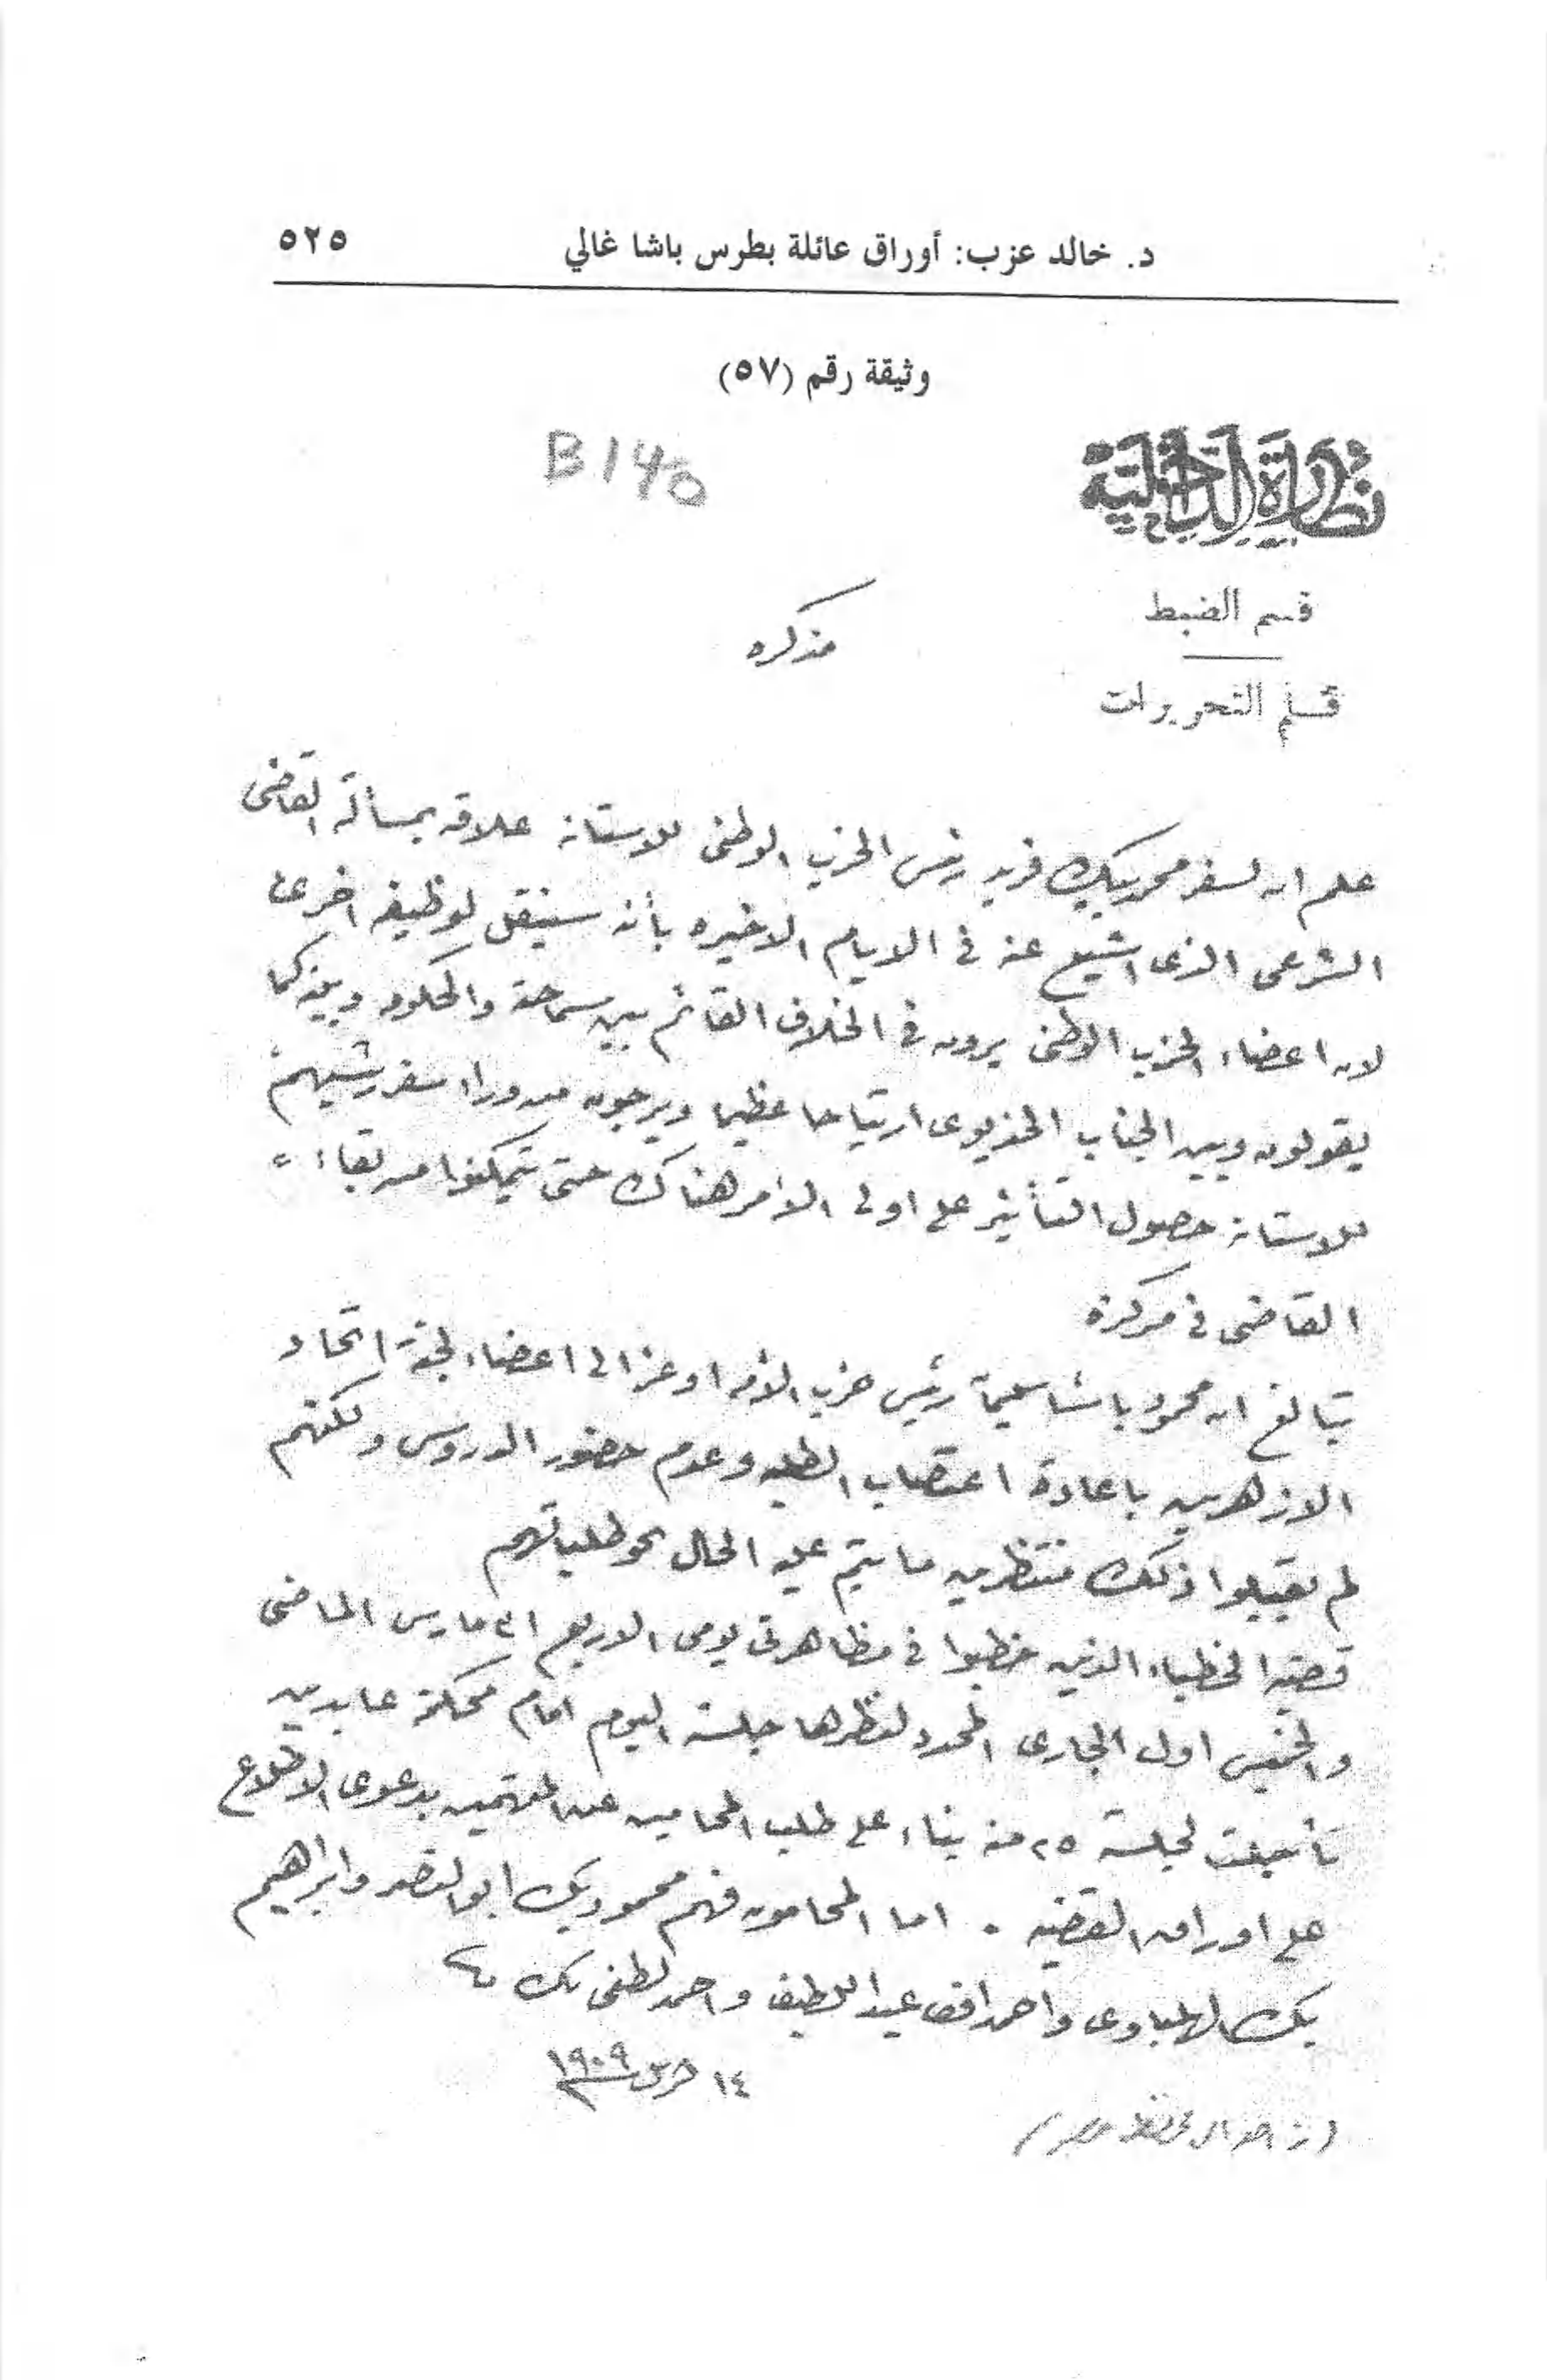 د. خالد عزب: أوراق عائلة بطرس باشا غالي ٥٢٥
وثيقة رقم (٥٧)
B140
نظارة الداخلية
قسم الضبط
مذكره
قلم التحريرات
علم ان لسفر محمد بيك فريد رئيس الحزب الوطنى للاستانة علاقه بمسألة القاضى
الشرعى الذى اشيع عنه فى الايام الاخيره بأنه سينقل لوظيفه اخرى
لان اعضاء الحزب الوطنى يرون فى الخلاف القائم بين سماحته والحكومه وبينه كما
يقولون وبين الجناب الخديوى ارتياحا عظيما ويرجون من وراء سفر رئيسهم
للاستانة حصول التأثير على اولى الامر هناك حتى يتمكنوا من بقاء
القاضى فى مركزه
محمود باشا سليمان رئيس حزب الأمه اوعز الى اعضاء لجنة اتحاد
الازهريين باعادة اعتصاب الطلبه وعدم حضور الدروس ولكنهم
لم يقبلوا ذلك منتظرين ما يتم عليه الحال نحو طلباتهم
قضية الخطباء الذين خطبوا فى مظاهرتى يومى الاربع ٣١ مارس الماضى
والخميس اول الجارى المحدد لنظرها جلسة اليوم امام محكمة عابدين
تأجلت لجلسة ٢٥ منه بناء على طلب المحامين عن المتهمين بدعوى الاطلاع
على اوراق القضيه . اما المحامون فهم محمود بك ابو النصر وابراهيم
بك الهلباوى واحمد افندى عبد اللطيف واحمد لطفى بك
١٤ ١٩٠٩